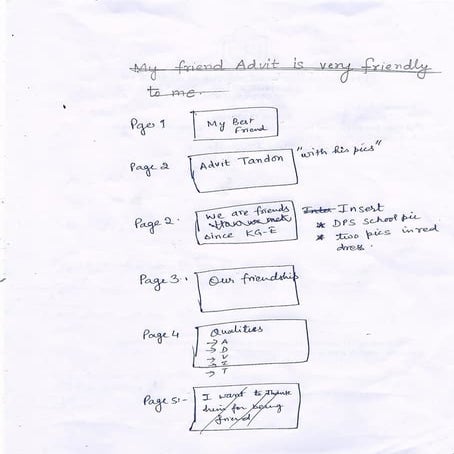 My friend Advit is very friendly
to me.
Page 1 My Best
Friend
Page 2 Advit Tandon "with his pics"
Page 2. We are friends
since KG-E
Insert
* DPS school pic
* two pics in red
dress.
Page 3.. Our friendship
Page 4 Qualities
→ A
→ D
→ V
→ I
→ T
Page 5:- I want to thank
him for being
friend